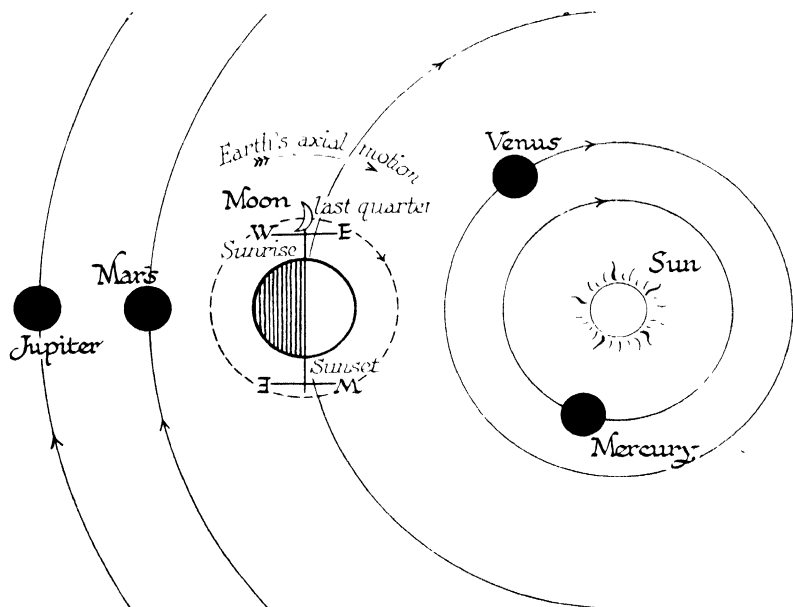 Venus
Earth's axial motion
Moon last quarter
W E
Sunrise
Sun
Mars
Jupiter
Sunset
E W
Mercury